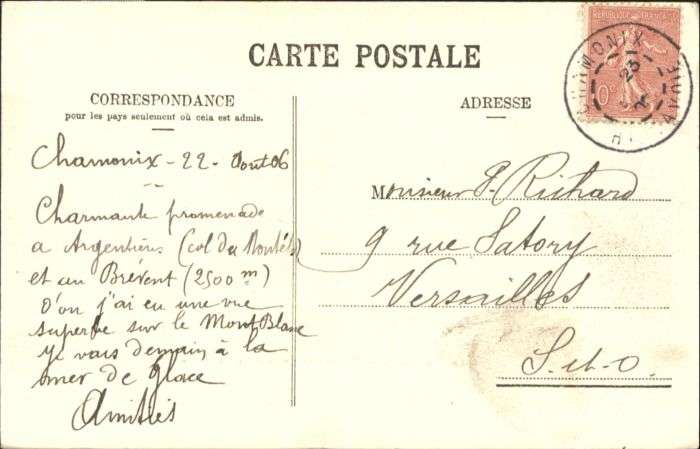 CARTE POSTALE
CORRESPONDANCE
pour les pays seulement où cela est admis.
Chamonix - 22 - Aout 06
Charmante promenade
a Argentière (col des Montets)
et au Brévent (2500 m)
d'ou j'ai eu une vue
superbe sur le Mont Blanc
je vais demain à la
mer de glace
Amitiés
ADRESSE
Monsieur P. Richard
9 rue Satory
Versailles
S.-et-O.
REPUBLIQUE FRANÇAISE
10c
CHAMONIX
23